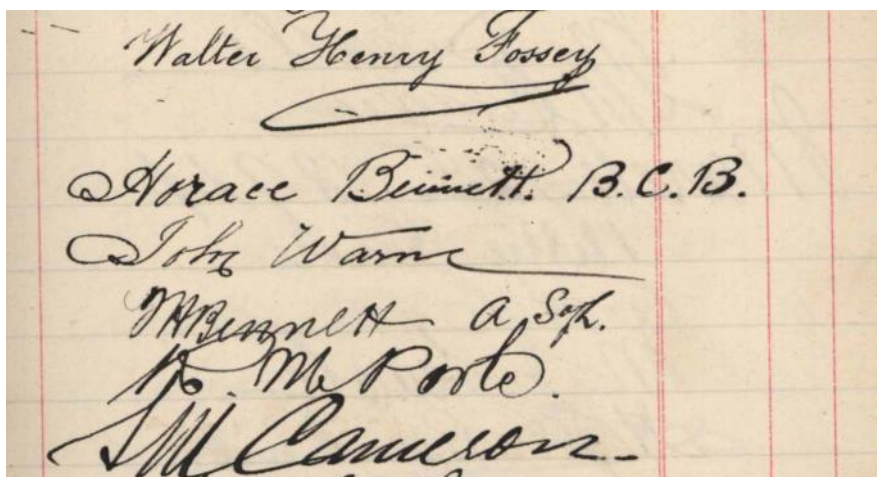 Walter Henry Fossey
Horace Bennett. B.C.B.
John Warne
Bennett A
R. Mc
Cameron